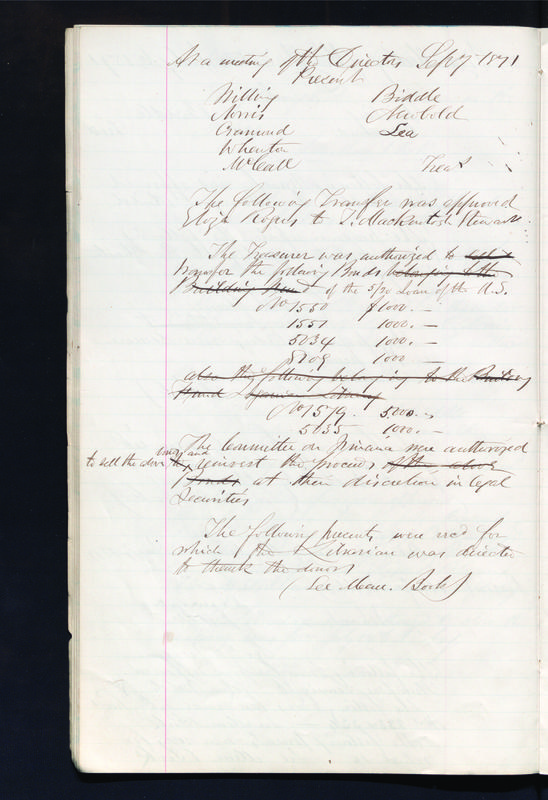 At a meeting of the Directors Sep 7 1871
Present
Willing Biddle
Norris Newbold
Cramond Lea
Wharton
McCall Treas
The following Transfer was approved
Rogers to J. Mackintosh Stewart
The Treasurer was authorized to sell &
transfer the following Bonds belonging to the
Building Fund of the 5/20 Loan of the U.S.
No 1550 $1000.—
1551 1000.—
5034 1000.—
5109 1000—
also the following belonging to the Building
Fund Loganian Library
No 1579. 5000.—
5035 1000.—
The Committee on Finance were authorized
to sell the above bonds and to reinvest the proceeds of the above
Bonds at their discretion in legal
Securities
The following presents were recd for
which the Librarian was directed
to thank the donors
(See Mem. Book)